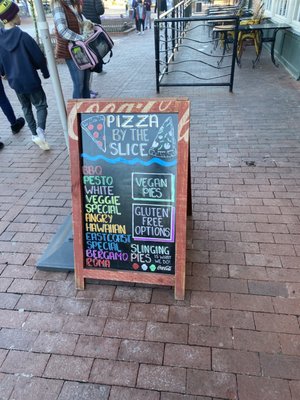 Coca-Cola
PIZZA
BY THE
SLICE
BBQ
PESTO
WHITE
VEGGIE
SPECIAL
ANGRY
HAWAIIAN
EASTCOAST
SPECIAL
BERGAMO
ROMA
VEGAN
PIES
GLUTEN
FREE
OPTIONS
SLINGING
PIES IS WHAT
WE DO!
Coca-Cola